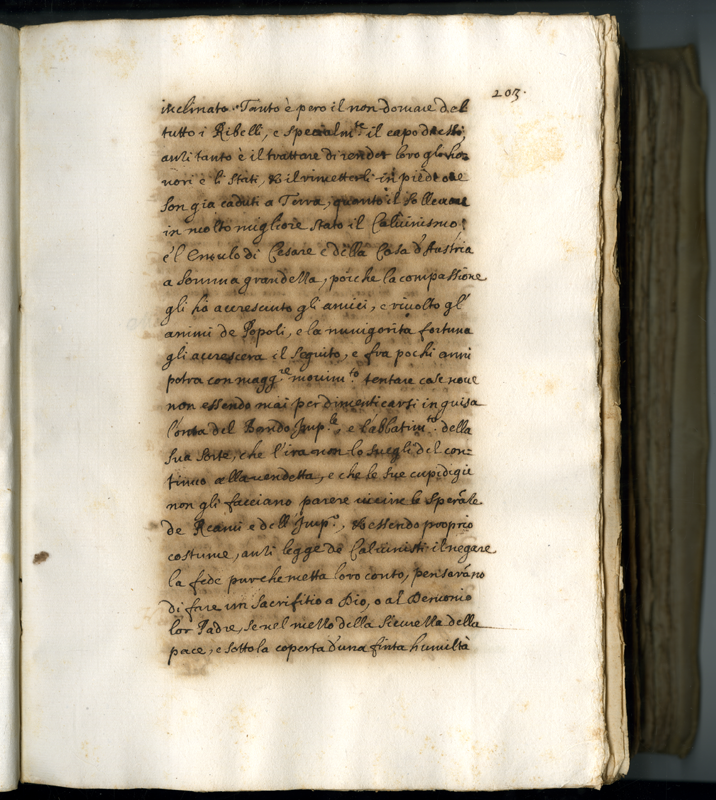 203.
inclinato. Tanto è pero il non domare del
tutto i Ribelli, e specialm.te il capo d'essi,
anzi tanto è il trattare di render loro gl'ho:
nori e li stati, & il rimetterli in piedi che
son gia caduti a Terra, quanto il sollevare
in molto migliore stato il Calvinismo:
e l'Emulo di Cesare e della Casa d'Austria
a somma grandezza, poiche la compassione
gli hà accresciuto gli amici, e rivolto gl'
animi de Popoli, e la rinvigorita fortuna
gli accrescerà il seguito, e fra pochi anni
potra con magg.re movim.to tentare cose nove
non essendo mai per dimenticarsi in guisa
l'onta del Bando Imp.le e l'abbatim.to della
sua sorte, che l'ira non lo svegli del con:
tinuo alla vendetta, e che le sue cupidigie
non gli facciano parere vicine le sperãze
de Reami e dell'Imp.o, & essendo proprio
costume, anzi legge de Calvinisti il negare
la fede purche metta loro conto, pensarãno
di fare un sacrifitio a Dio, o al Demonio
lor Padre, se nel mezzo della sicurezza della
pace, e sotto la coperta d'una finta humiltà